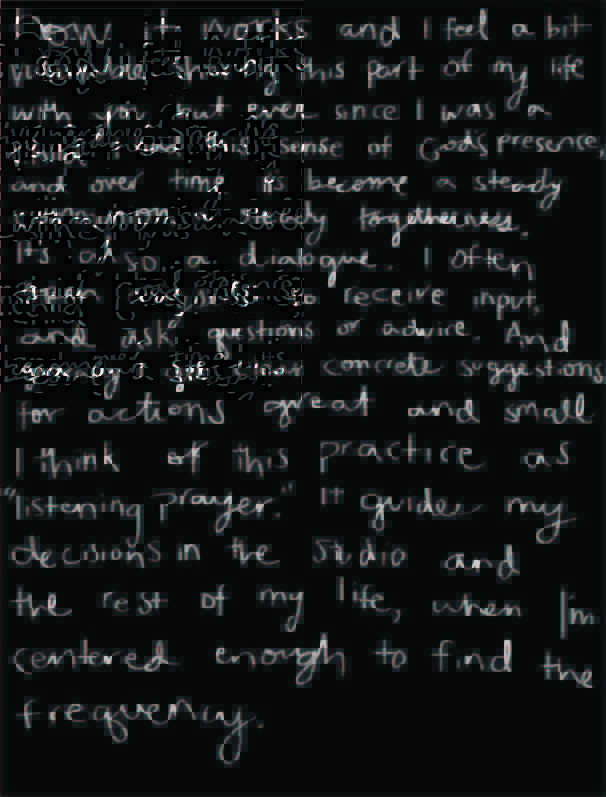 how it works and I feel a bit
vulnerable sharing this part of my life
with you but ever since I was a
I had this sense of God's presence,
and over time it's become a steady
communion, a steady togetherness.
It's also a dialogue. I often
to receive input,
and ask questions or advice. And
get concrete suggestions
for actions great and small
I think of this practice as
"listening prayer." It guides my
decisions in the studio and
the rest of my life, when I'm
centered enough to find the
frequency.